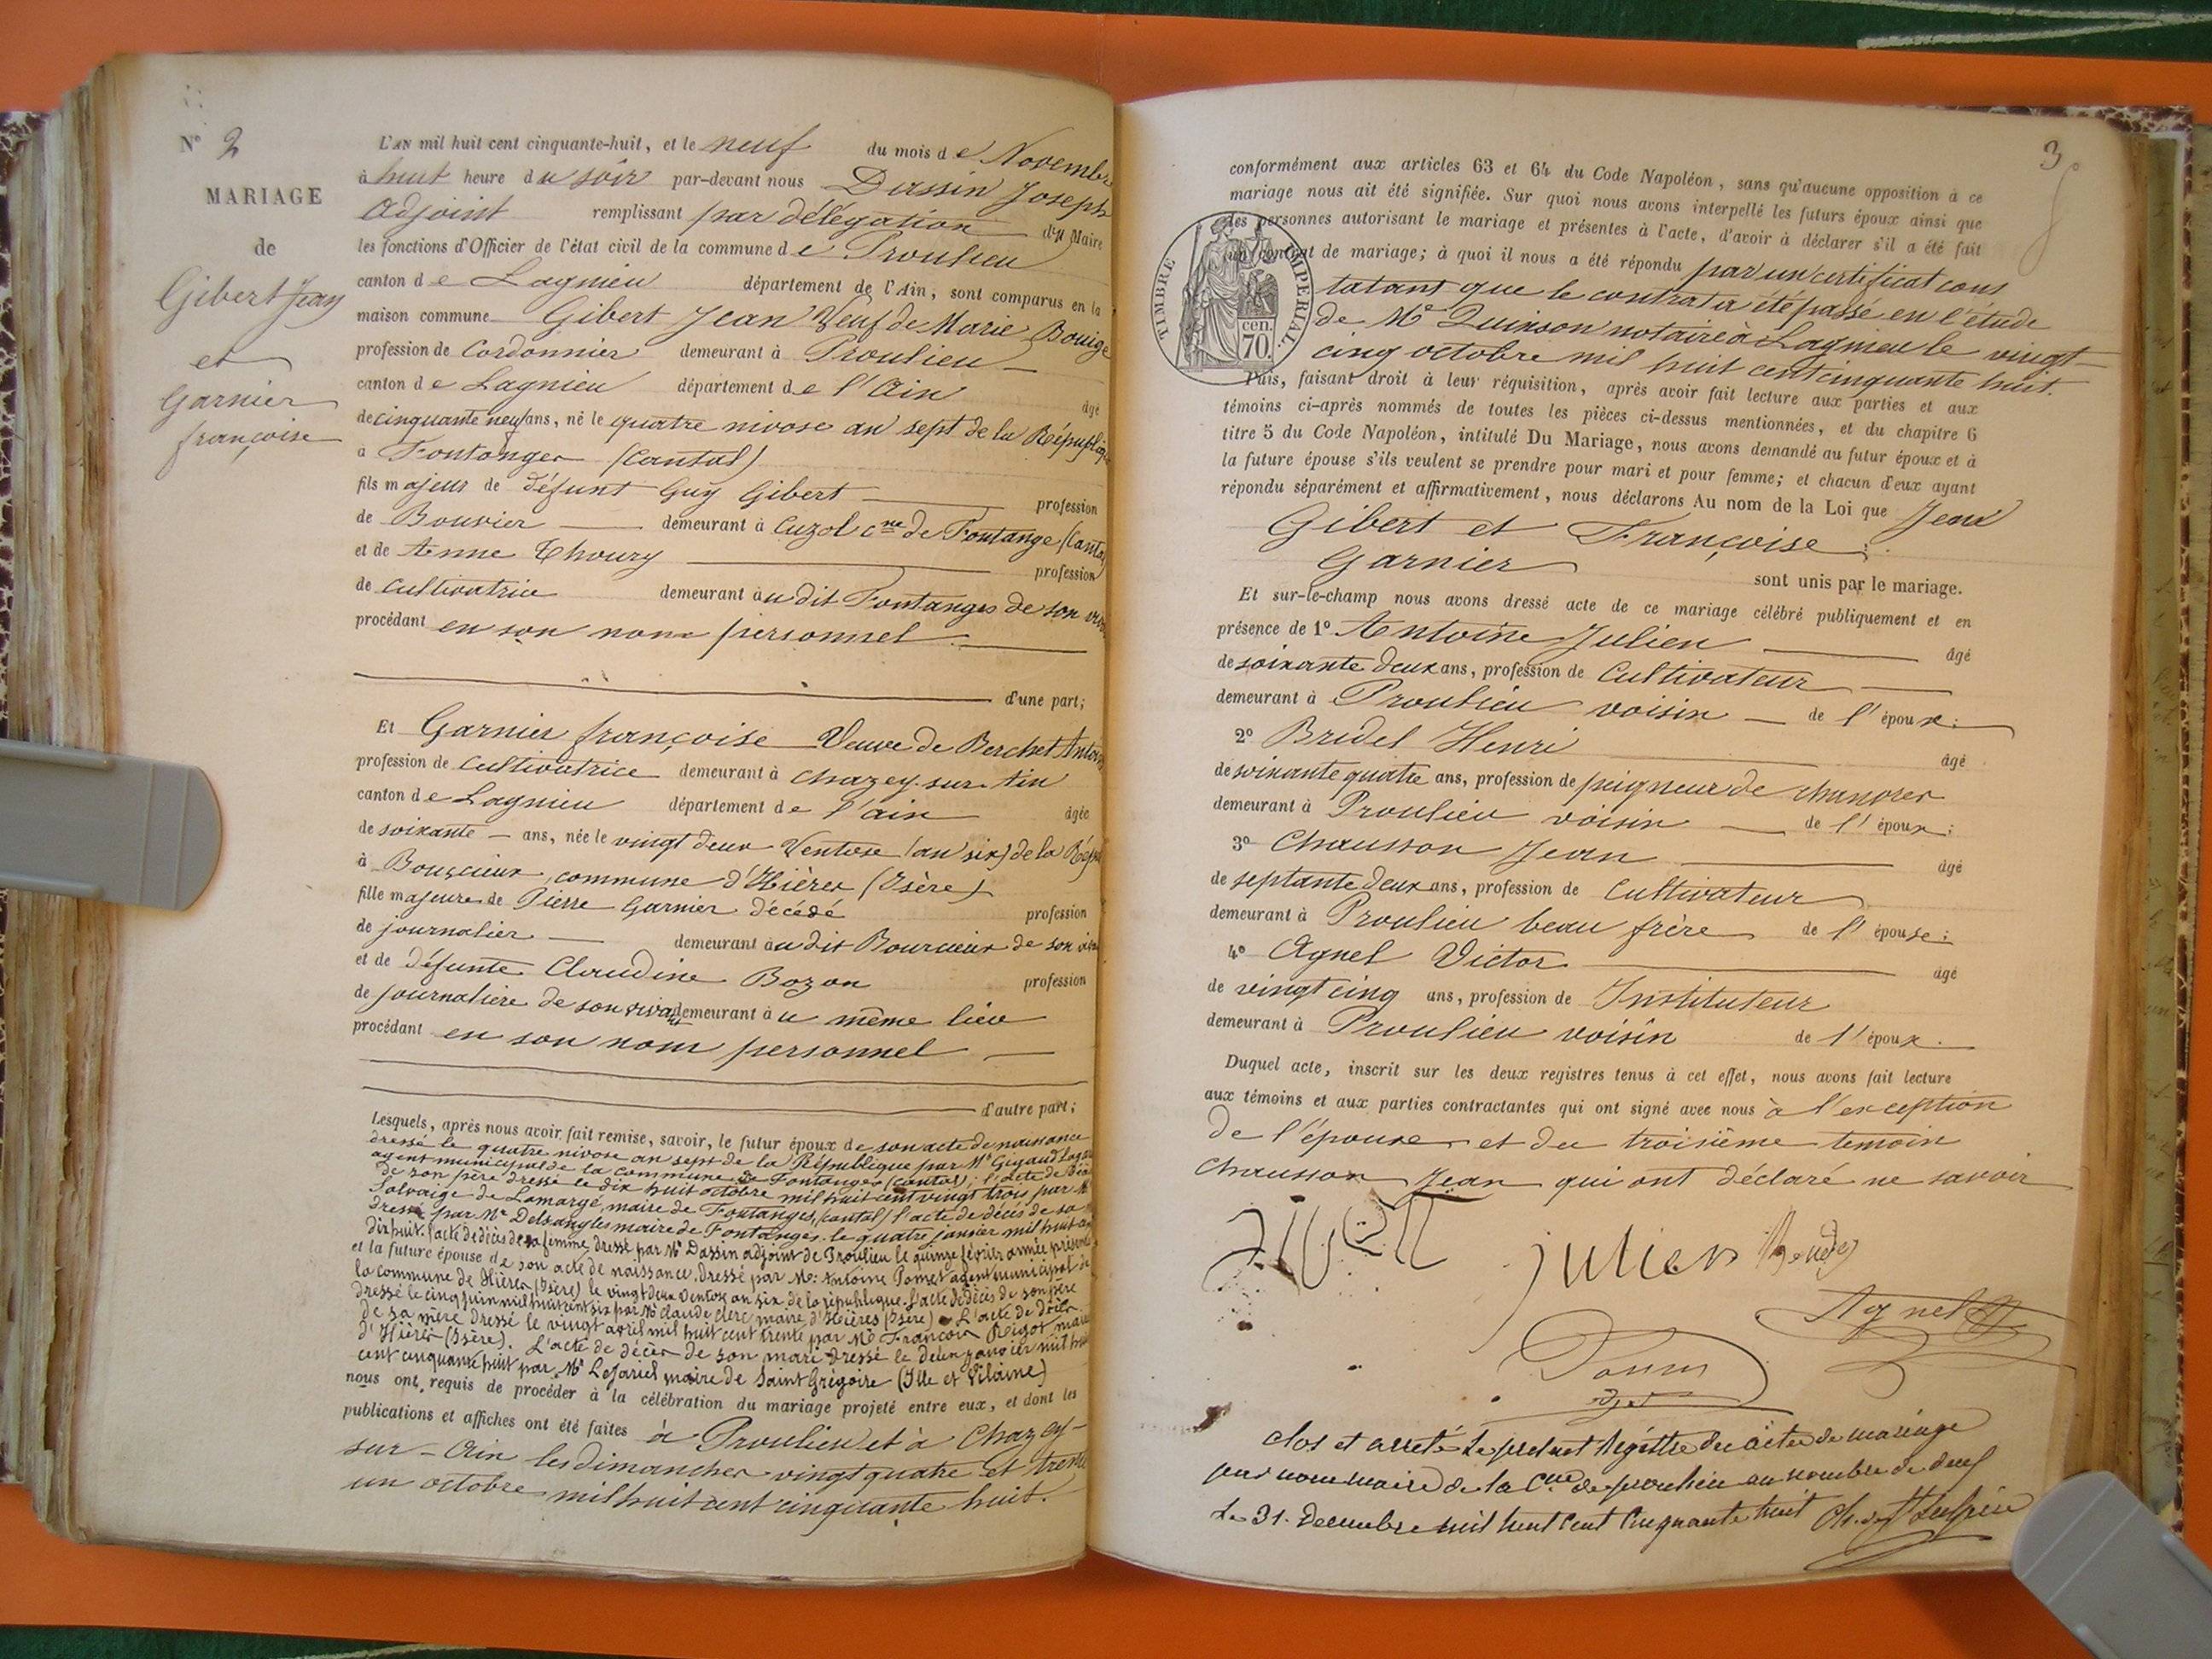 N° 2
MARIAGE
de
Gibert Jean
et
Garnier
françoise
L'AN mil huit cent cinquante-huit, et le neuf du mois de Novembre
à huit heure du soir par-devant nous Dassin Joseph
Adjoint remplissant par délégation du Maire
les fonctions d'Officier de l'état civil de la commune de Proulieu
canton de Lagnieu département de l'Ain, sont comparus en la
maison commune Gibert Jean Veuf de Marie Bouige
profession de Cordonnier demeurant à Proulieu
canton de Lagnieu département de l'Ain âgé
de cinquante neuf ans, né le quatre nivose an sept de la République
à Fontanges (Cantal)
fils majeur de défunt Guy Gibert profession
de Bouvier demeurant à Cuzol cne de Fontange (Cantal
et de Anne Choury profession
de cultivatrice demeurant au dit Fontanges de son
procédant en son nom personnel
d'une part;
Et Garnier françoise Veuve de Berchet Antoine
profession de Cultivatrice demeurant à Chazey-sur-Ain
canton de Lagnieu département de l'ain âgée
de soixante ans, née le vingt deux Ventose (an six) de la Rép
à Bourcieux, commune d'Hières (Isère)
fille majeure de Pierre Garnier décédé profession
de journalier demeurant au dit Bourcieux de son
et de défunte Claudine Bozon profession
de journalière de son vivant demeurant au même lieu
procédant en son nom personnel
d'autre part;
Lesquels, après nous avoir fait remise, savoir, le futur époux de son acte de naissance
dressé le quatre nivose an sept de la République par Mr Gigaud
agent municipal de la commune de Fontanges (Cantal); l'acte de
de son père dressé le dix huit octobre mil huit cent vingt trois par Mr
Salvaige de Lamargé, maire de Fontanges, (cantal) l'acte de décès de sa
dressé par Mr Delsangles maire de Fontanges le quatre janvier mil huit cent
dix huit. l'acte de décès de sa femme dressé par Mr Dassin adjoint de Proulieu le quinze février année présente
et la future épouse de son acte de naissance. Dressé par Mr: Antoine Pomet agent municipal de
la commune de Hières (Isère) le vingt deux Ventose an six de la république. L'acte de décès de son père
dressé le cinq juin mil huit cent six par Mr Claude Clerc maire d'Hières (Isère) L'acte de décès
de sa mère dressé le vingt avril mil huit cent trente par Mr François Reigot maire
d'Hières (Isère). L'acte de décès de son mari dressé le deux janvier mil huit
cent cinquante huit par Mr Lejariel maire de Saint Grégoire (Ille et Vilaine)
nous ont requis de procéder à la célébration du mariage projeté entre eux, et dont les
publications et affiches ont été faites à Proulieu et à Chazey-
sur-Ain les dimanches vingt quatre et trente
un octobre mil huit cent cinquante huit.
3
conformément aux articles 63 et 64 du Code Napoléon, sans qu'aucune opposition à ce
mariage nous ait été signifiée. Sur quoi nous avons interpellé les futurs époux ainsi que
les personnes autorisant le mariage et présentes à l'acte, d'avoir à déclarer s'il a été fait
un contrat de mariage; à quoi il nous a été répondu par un certificat cons
tatant que le contrat a été passé en l'étude
de Me Quinson notaire à Lagnieu le vingt-
cinq octobre mil huit cent cinquante huit.
TIMBRE IMPERIAL
cen.
70.
Puis, faisant droit à leur réquisition, après avoir fait lecture aux parties et aux
témoins ci-après nommés de toutes les pièces ci-dessus mentionnées, et du chapitre 6
titre 5 du Code Napoléon, intitulé Du Mariage, nous avons demandé au futur époux et à
la future épouse s'ils veulent se prendre pour mari et pour femme; et chacun d'eux ayant
répondu séparément et affirmativement, nous déclarons Au nom de la Loi que Jean
Gibert et Françoise
Garnier sont unis par le mariage.
Et sur-le-champ nous avons dressé acte de ce mariage célébré publiquement et en
présence de 1° Antoine Julien âgé
de soixante deux ans, profession de Cultivateur
demeurant à Proulieu voisin de l'époux;
2° Bredel Henri âgé
de soixante quatre ans, profession de peigneur de chanvres
demeurant à Proulieu voisin de l'époux;
3° Chausson Jean âgé
de septante deux ans, profession de Cultivateur
demeurant à Proulieu beau frère de l'épouse;
4° Agnel Victor âgé
de vingt cinq ans, profession de Instituteur
demeurant à Proulieu voisin de l'époux.
Duquel acte, inscrit sur les deux registres tenus à cet effet, nous avons fait lecture
aux témoins et aux parties contractantes qui ont signé avec nous à l'exception
de l'épouse et du troisième temoin
Chausson Jean qui ont déclaré ne savoir
Julien
Agnel
clos et arreté le present Registre des actes de mariage
par nous maire de la Cne de proulieu au nombre de deux
Le 31. Decembre mil huit cent cinquante huit